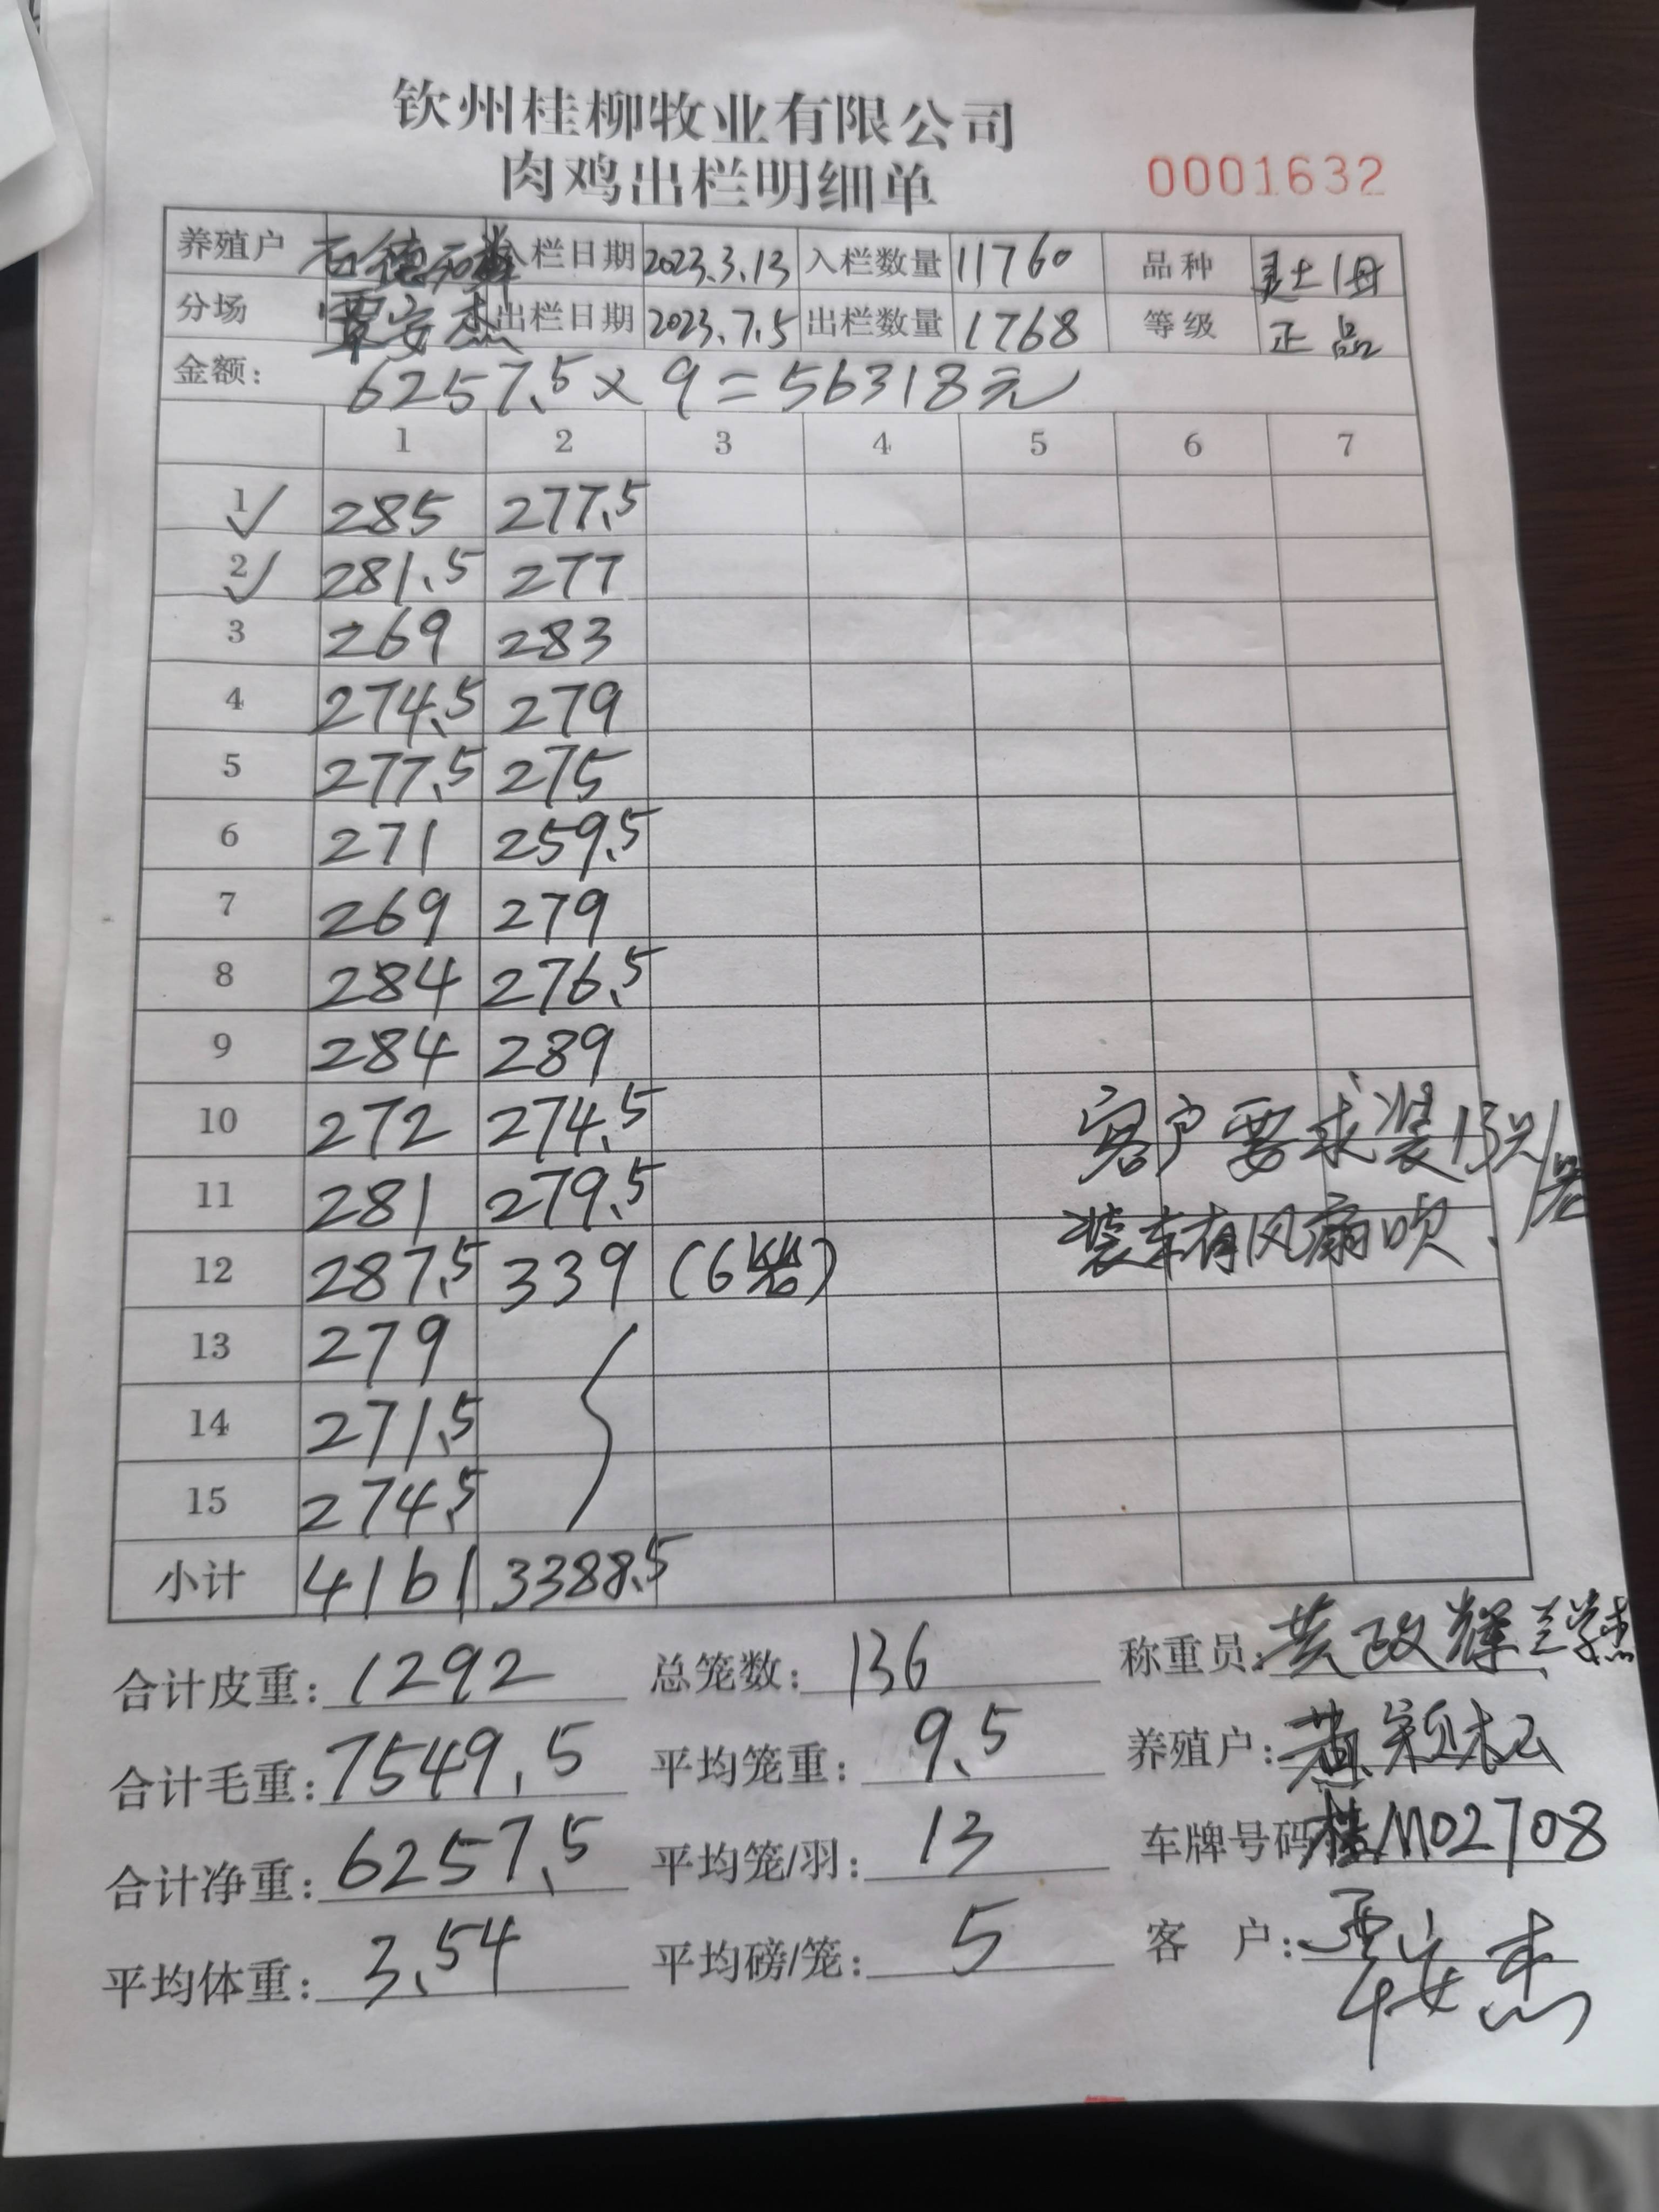 钦州桂柳牧业有限公司
肉鸡出栏明细单 0001632
养殖户 石德 入栏日期 2023.3.13 入栏数量 11760 品种 土1母
分场 覃安杰 出栏日期 2023.7.5 出栏数量 1768 等级 正品
金额: 6257.5×9=56318元
1 2 3 4 5 6 7
1 285 277.5
2 281.5 277
3 269 283
4 274.5 279
5 277.5 275
6 271 259.5
7 269 279
8 284 276.5
9 284 289
10 272 274.5 客户要求装13只/笼
11 281 279.5 装车有风扇吹.
12 287.5 339 (6笼)
13 279
14 271.5
15 274.5
小计 4161 3388.5
合计皮重: 1292 总笼数: 136 称重员: 黄政辉
合计毛重: 7549.5 平均笼重: 9.5 养殖户: 黄颖松
合计净重: 6257.5 平均笼/羽: 13 车牌号码 桂M02708
平均体重: 3.54 平均磅/笼: 5 客 户: 覃安杰